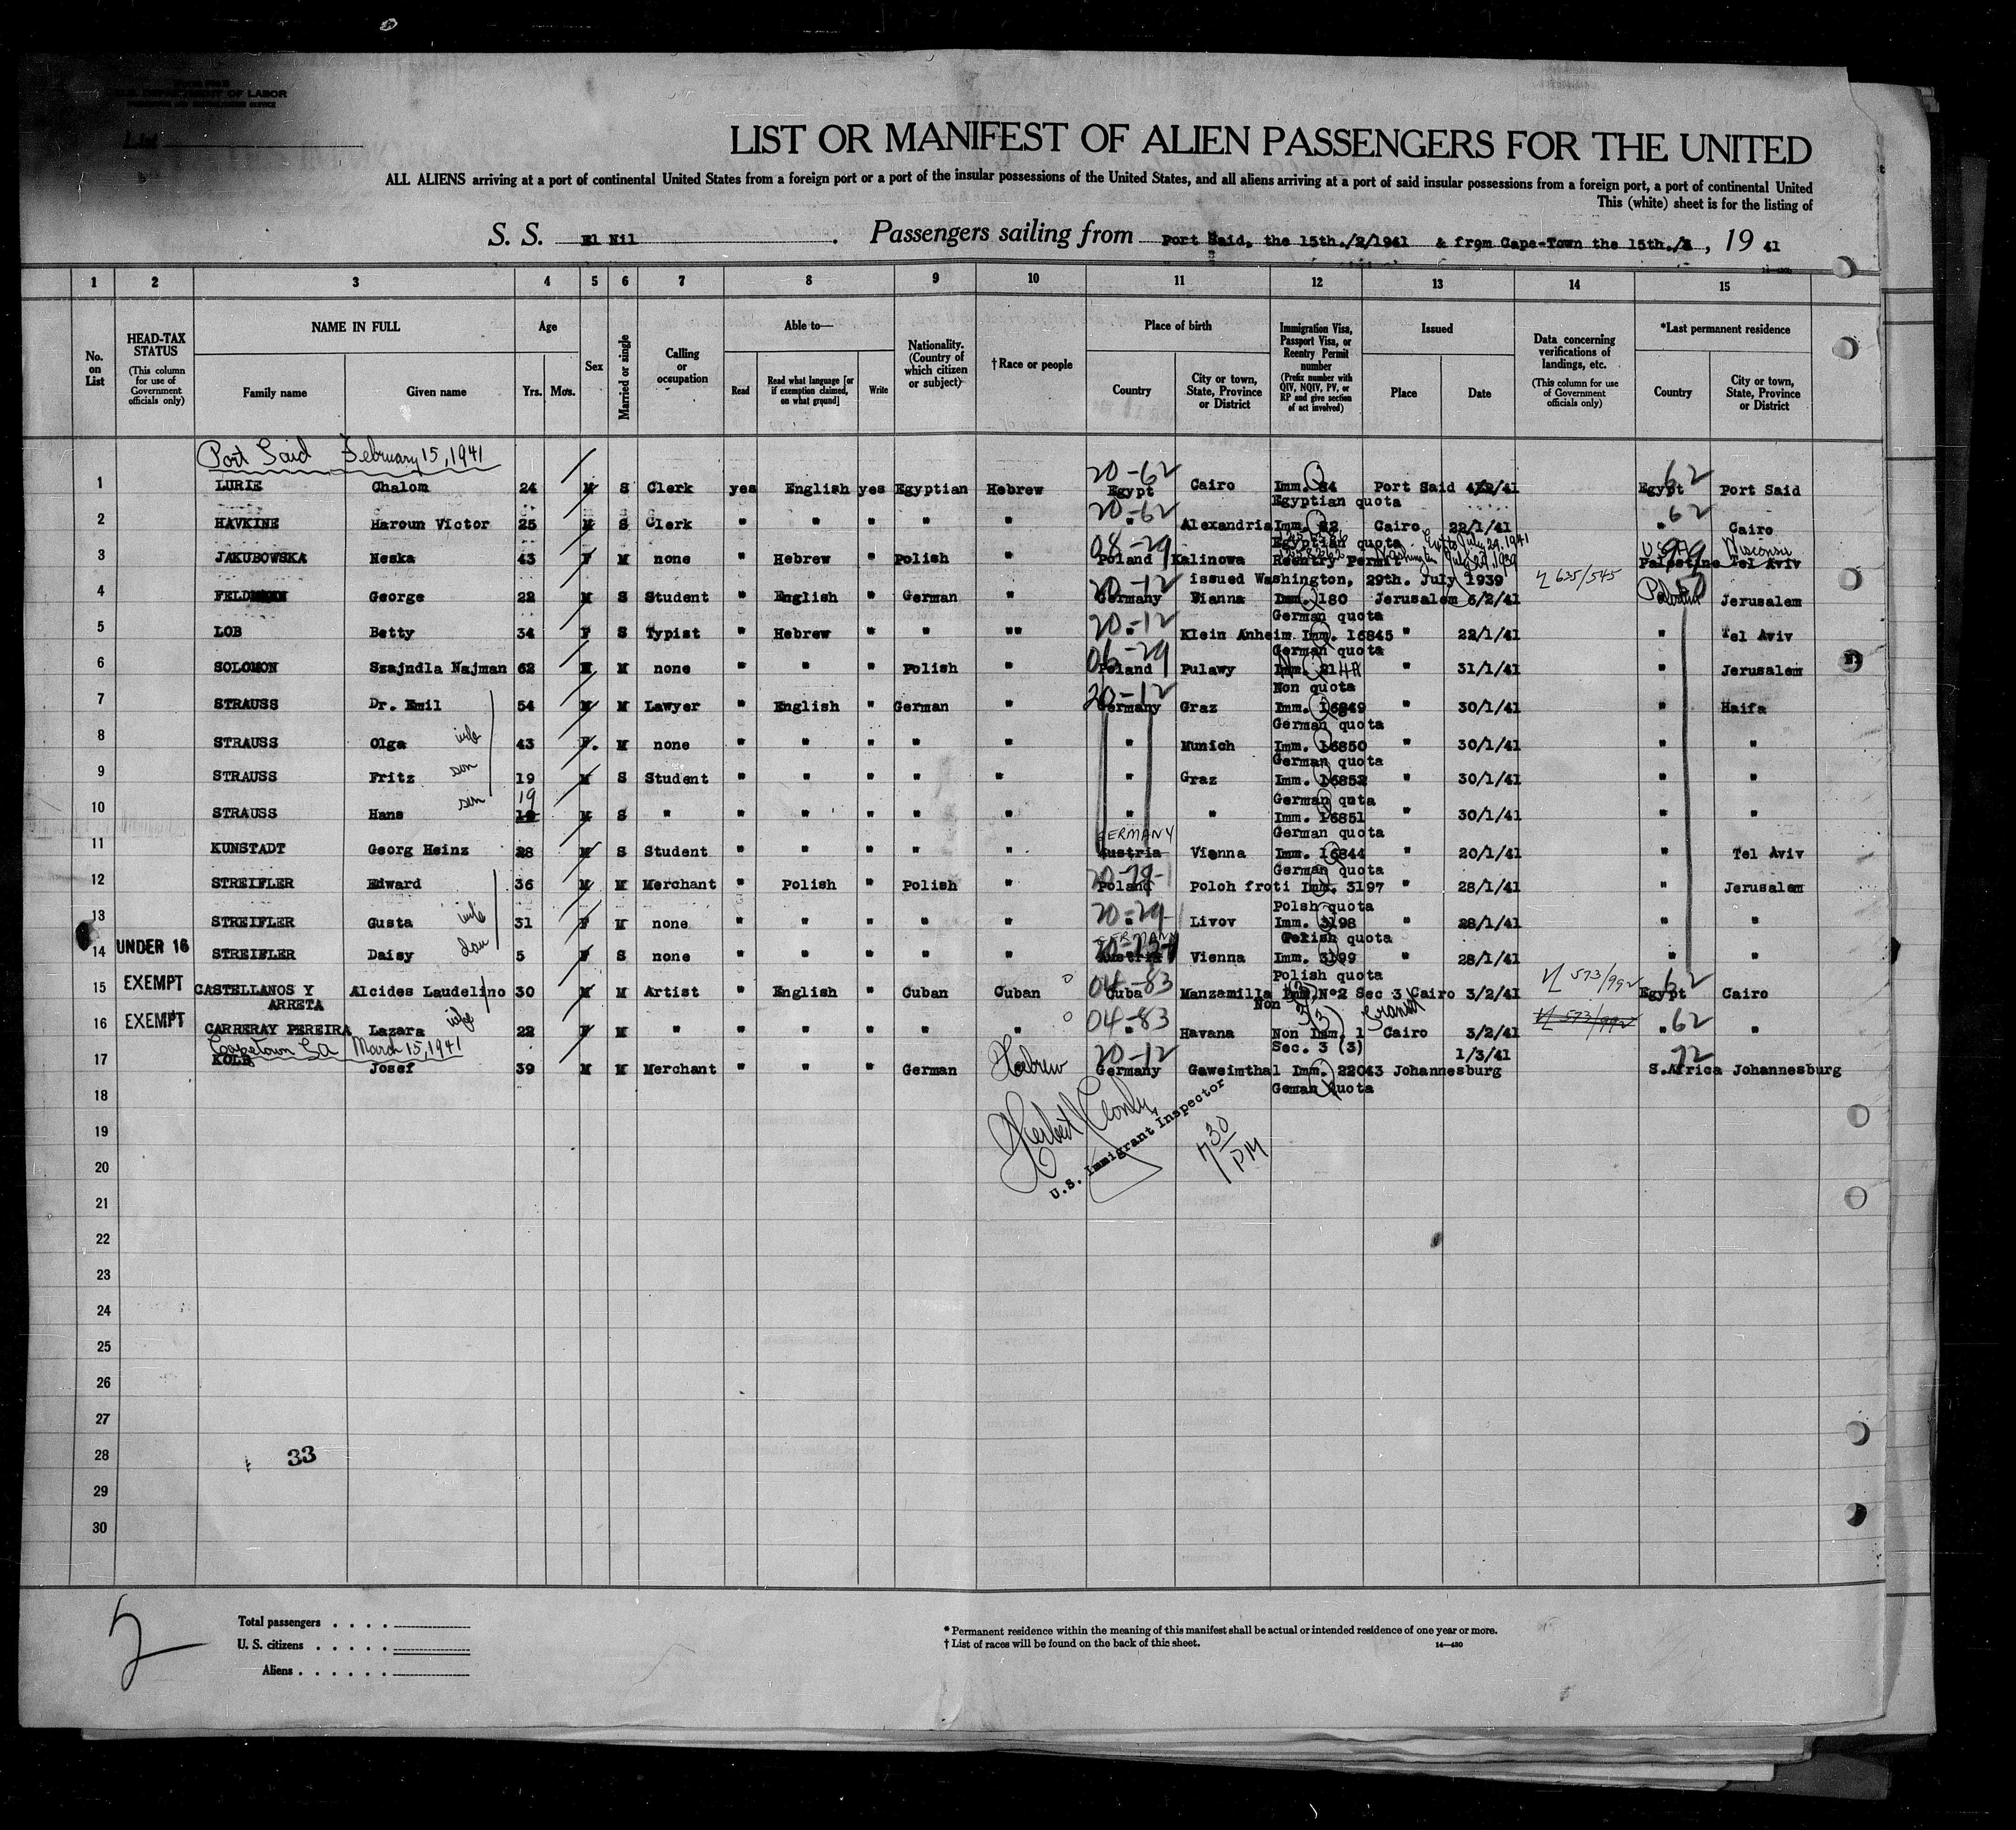 U.S. DEPARTMENT OF LABOR
List
LIST OR MANIFEST OF ALIEN PASSENGERS FOR THE UNITED
ALL ALIENS arriving at a port of continental United States from a foreign port or a port of the insular possessions of the United States, and all aliens arriving at a port of said insular possessions from a foreign port, a port of continental United
This (white) sheet is for the listing of
S. S. El Nil. Passengers sailing from Port Said, the 15th./2/1941 & from Cape-Town the 15th./3, 19 41
1 2 3 4 5 6 7 8 9 10 11 12 13 14 15
No. on List
HEAD-TAX STATUS (This column for use of Government officials only)
NAME IN FULL
Family name Given name
Age
Yrs. Mos.
Sex
Married or single
Calling or occupation
Able to—
Read Read what language [or if exemption claimed, on what ground] Write
Nationality. (Country of which citizen or subject)
†Race or people
Place of birth
Country City or town, State, Province or District
Immigration Visa, Passport Visa, or Reentry Permit number (Prefix number with QIV, NQIV, PV, or RP and give section of act involved)
Issued
Place Date
Data concerning verifications of landings, etc. (This column for use of Government officials only)
*Last permanent residence
Country City or town, State, Province or District
Port Said February 15, 1941
20-62 62
1 LURIE Chalom 24 M S Clerk yes English yes Egyptian Hebrew Egypt Cairo Imm. 84 Port Said 4/2/41 Egypt Port Said
Egyptian quota
20-62 62
2 HAVKINE Haroun Victor 25 M S Clerk " " " " " " Alexandria Imm. 82 Cairo 22/1/41 " Cairo
Egyptian quota July 29, 1941
08-29 Washington July 29, 1939 USA 99 Wisconsin
3 JAKUBOWSKA Neska 43 F M none " Hebrew " Polish " Poland Kalinowa Reentry Permit Palestine Tel Aviv
issued Washington, 29th. July 1939 635/545
20-12
4 George 22 M S Student " English " German " Germany Vienna Imm. 180 Jerusalem 5/2/41 50 Jerusalem
German quota
20-12
5 LOB Betty 34 F S Typist " Hebrew " " "" " Klein Anheim Imm. I6845 " 22/1/41 " Tel Aviv
German quota
06-29
6 SOLOMON Szajndla Najman 62 M none " " " Polish " Poland Pulawy Imm. " 31/1/41 " Jerusalem
Non quota
20-12
7 STRAUSS Dr. Emil 54 M M Lawyer " English " German " Germany Graz Imm. I6849 " 30/1/41 " Haifa
German quota
8 STRAUSS Olga wife 43 F. M none " " " " " " Munich Imm. I6850 " 30/1/41 " "
German quota
9 STRAUSS Fritz son 19 M S Student " " " " " " Graz Imm. I6852 " 30/1/41 " "
German quta
10 STRAUSS Hans son 19 M S " " " " " " " " Imm. I6851 " 30/1/41 " "
German quota
GERMANY
11 KUNSTADT Georg Heinz 28 M S Student " " " " " Austria Vienna Imm. I6844 " 20/1/41 " Tel Aviv
German quota
20-29
12 STREIFLER Edward 36 M M Merchant " Polish " Polish " Poland Poloh froti Imm. 3197 " 28/1/41 " Jerusalem
Polsh quota
20-29
13 STREIFLER Gusta wife 31 F M none " " " " " " Livov Imm. 3198 " 28/1/41 " "
Polish quota
GERMANY
14 UNDER 16 STREIFLER Daisy dau 5 F S none " " " " " Austria Vienna Imm. 3199 " 28/1/41 " "
Polish quota
04-83 573/992 62
15 EXEMPT CASTELLANOS Y ARRETA Alcides Laudelino 30 M M Artist " English " Cuban Cuban Cuba Manzamilla Imm. Nº2 Sec 3 Cairo 3/2/41 Egypt Cairo
Non
04-83 Transit 573/992 62
16 EXEMPT CARRERAY PEREIRA Lazara wife 22 F M " " " " " " " Havana Non Imm. 1 Cairo 3/2/41 " "
Sec. 3 (3)
Capetown SA March 15, 1941
20-12 1/3/41 72
17 KOLB Josef 39 M M Merchant " " " German Hebrew Germany Gaweimthal Imm. 22043 Johannesburg S.Africa Johannesburg
Geman quota
18
19
20
21
22
23
24
25
26
27
28
29
30
U.S. Immigrant Inspector
7 30 PM
33
2
Total passengers
U. S. citizens
Aliens
* Permanent residence within the meaning of this manifest shall be actual or intended residence of one year or more.
† List of races will be found on the back of this sheet.
14—430